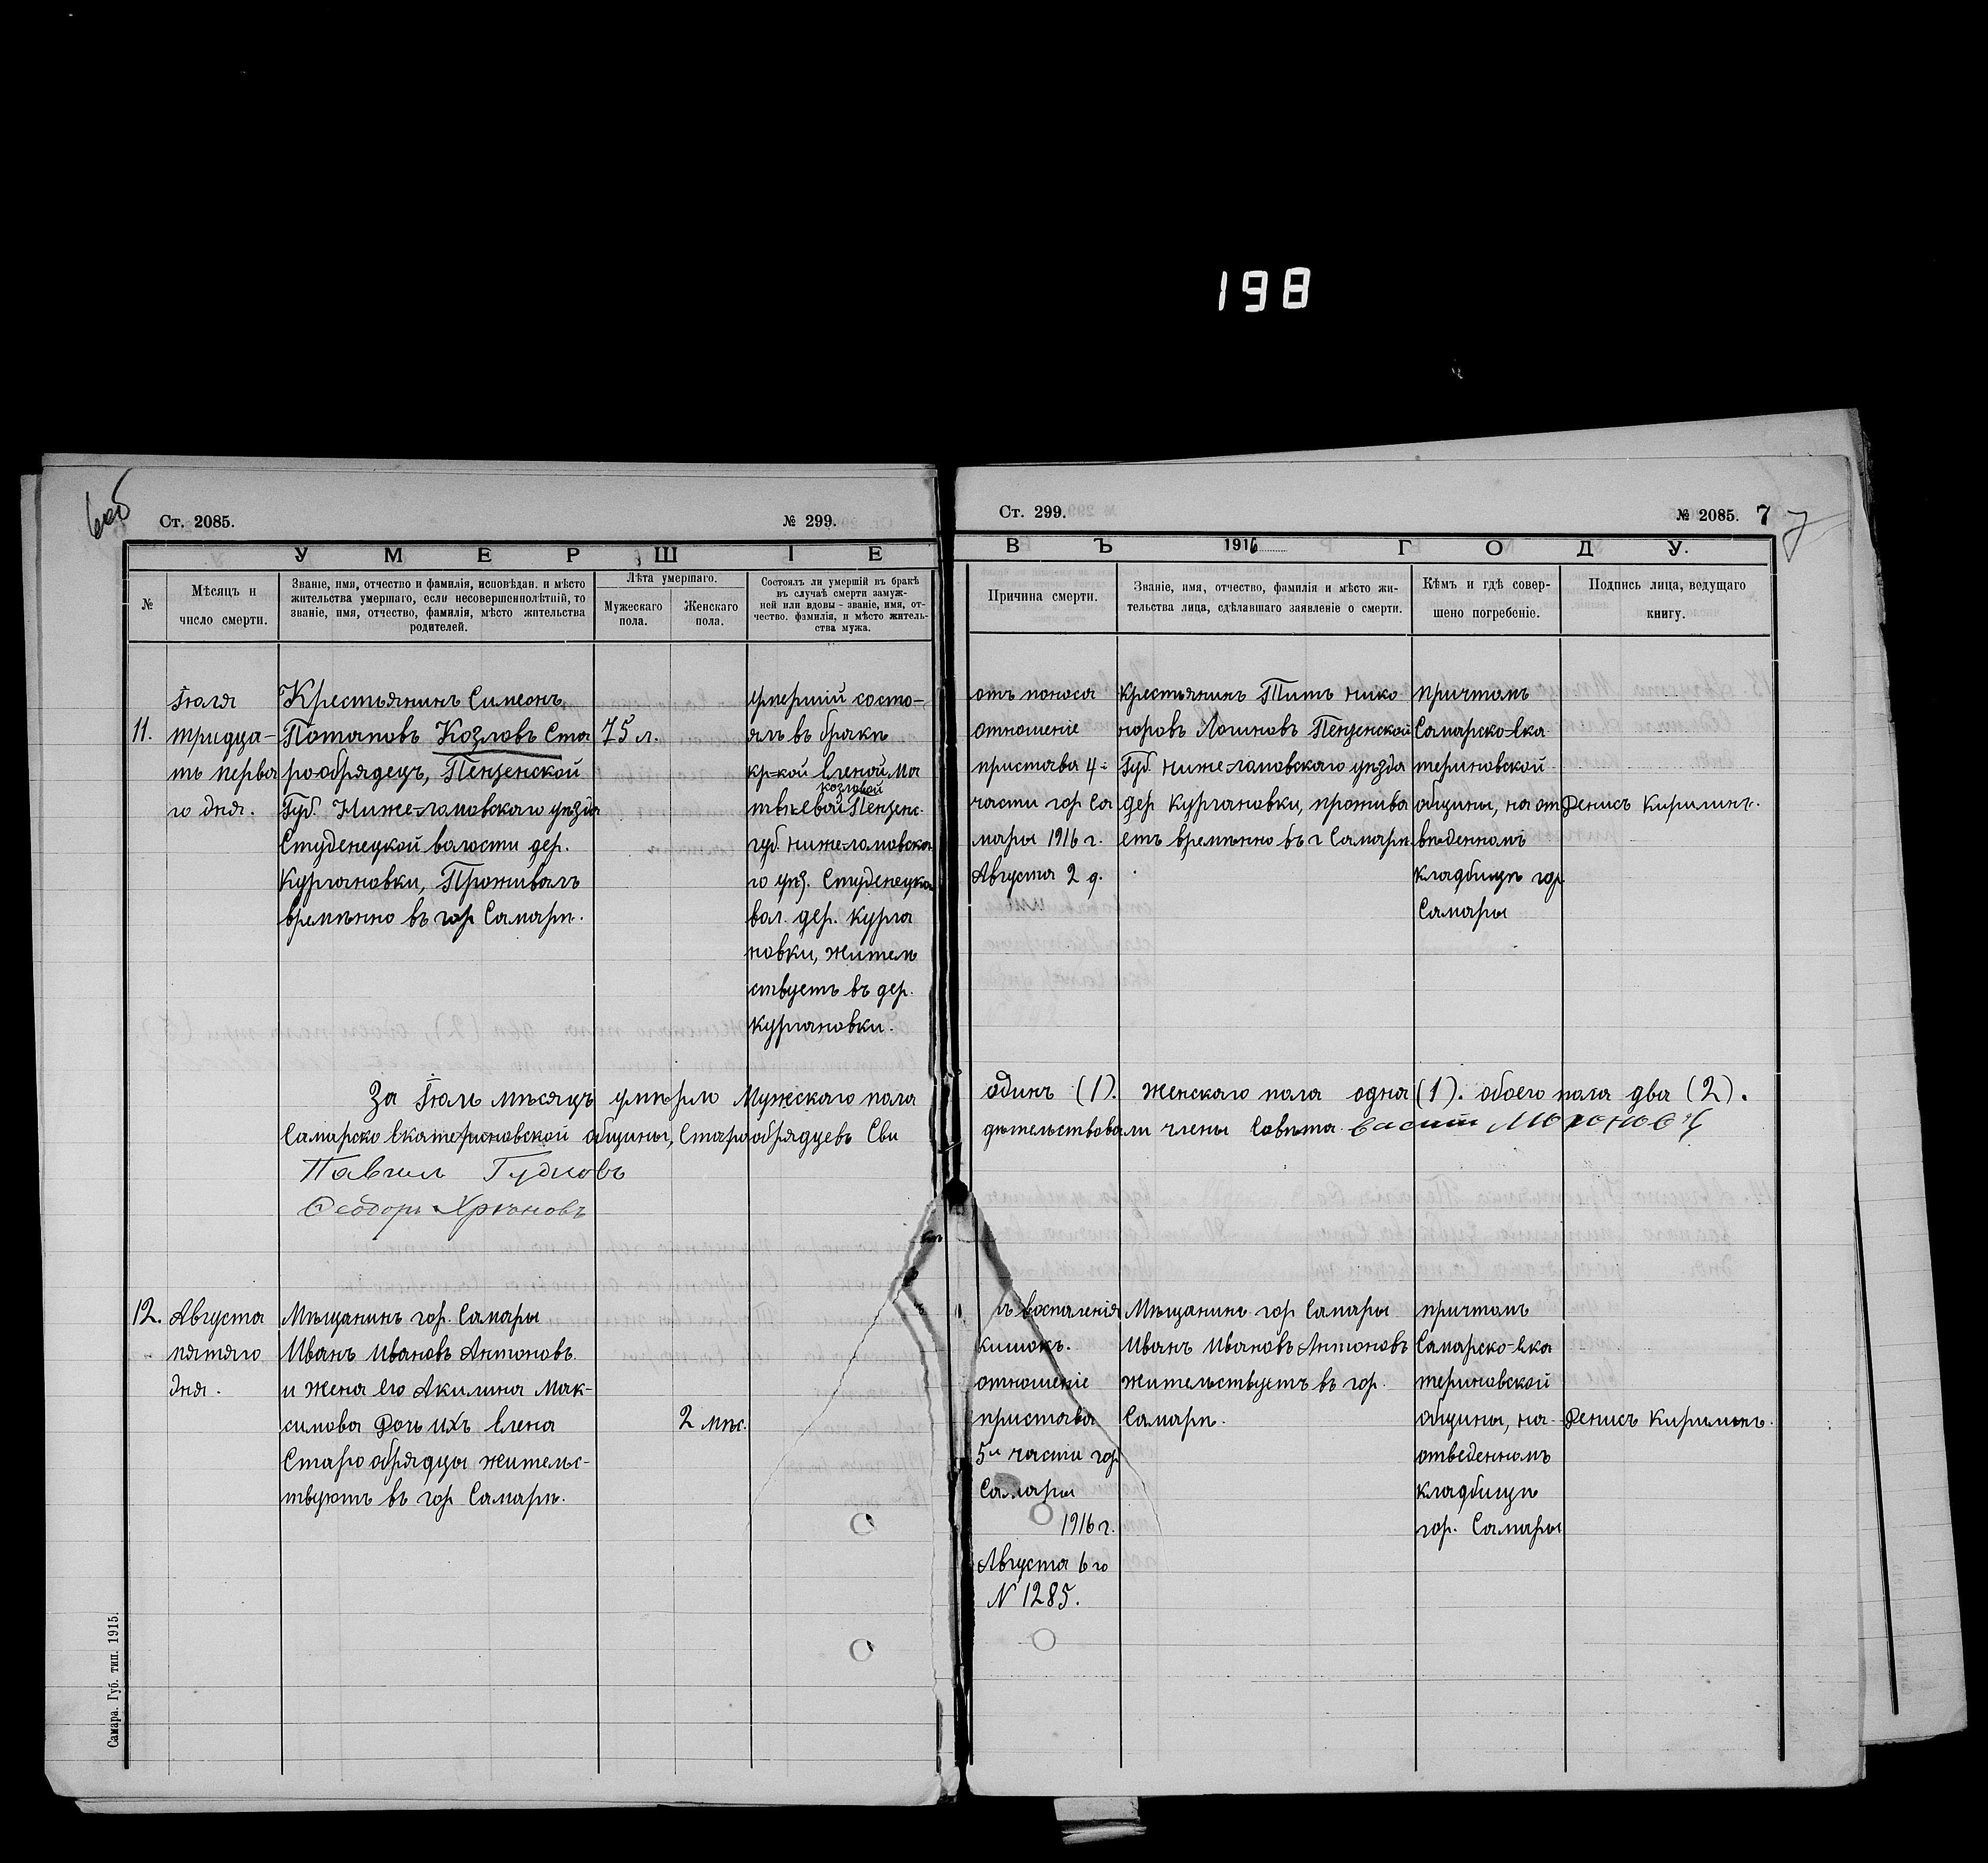 198
6 об
Ст. 2085.
№ 299.
УМЕРШІЕ
№
Мѣсяцъ и
число смерти.
Званіе, имя, отчество и фамилія, исповѣдан. и мѣсто
жительства умершаго, если несовершеннолѣтній, то
званіе, имя, отчество, фамилія, мѣсто жительства
родителей.
Лѣта умершаго.
Мужескаго
пола.
Женскаго
пола.
Состоялъ ли умершій въ бракѣ
въ случаѣ смерти замуж-
ней или вдовы - званіе, имя, от-
чество. фамилія, и мѣсто житель-
ства мужа.
11.
Іюля
тридца-
ть перва
го дня.
Крестьянинъ Симеонъ
Потаповъ Козловъ Ста
рообрядецъ, Пензенской
Губ. Ниже-ломовскаго уѣзда
Студенецкой волости дер.
Кургановки, Проживалъ
времѣнно въ гор Самарѣ.
75 л.
умершій состо-
ялъ въ бракѣ
кр=кой Еленой Ма
козловой
твѣевой Пензенс.
губ. нижеломовска
го уѣз. Студенецкой
вол. дер. Курга
новки, житель
ствуетъ въ дер.
Кургановки.
За Іюль мѣсяцъ умѣрло Мужскаго пола
Самарско Екатериновской общины, Старообрядцевъ Сви
Павелъ Гудковъ
Феодоръ Хреновъ
12.
Августа
пятаго
дня.
Мѣщанинъ гор. Самары
Иванъ Ивановъ Антоновъ.
и жена его Акилина Мак-
симова Дочь ихъ Елена
Старообрядцы жительс-
твуютъ въ гор Самарѣ.
2 мѣс.
Самара. Губ. тип. 1915.
Ст. 299.
№ 2085. 7
7
ВЪ 1916 ГОДУ.
Причина смерти.
Званіе, имя, отчество, фамилія и мѣсто жи-
тельства лица, сдѣлавшаго заявленіе о смерти.
Кѣмъ и гдѣ совер-
шено погребеніе.
Подпись лица, ведущаго
книгу.
отъ поноса
отношеніе
пристава 4=
части гор Са
мары 1916 г.
Августа 2 д.
Крестьянинъ Титъ Нико
норовъ Логиновъ Пензенской
Губ. нижеломовскаго уѣзда
дер Кургановки, прожива
етъ времѣнно въ г Самарѣ.
причтомъ
Самарско-Ека
териновской
общины, на от
вѣденномъ
кладбищѣ гор.
Самары
Денисъ Кирилинъ.
одинъ (1). женскаго пола одна (1). обоего пола два (2).
дѣтельствовали члены Совѣта
ъ воспаленія
кишокъ.
отношеніе
пристава
5й части гор
Самары
1916 г.
Августа 6 го
N 1285.
Мѣщанинъ гор Самары
Иванъ Ивановъ Антоновъ
жительствуетъ въ гор.
Самарѣ.
причтомъ
Самарско-Ека
териновской
общины, на-
отведенномъ
кладбищѣ
гор. Самары
Денисъ Кирилинъ.